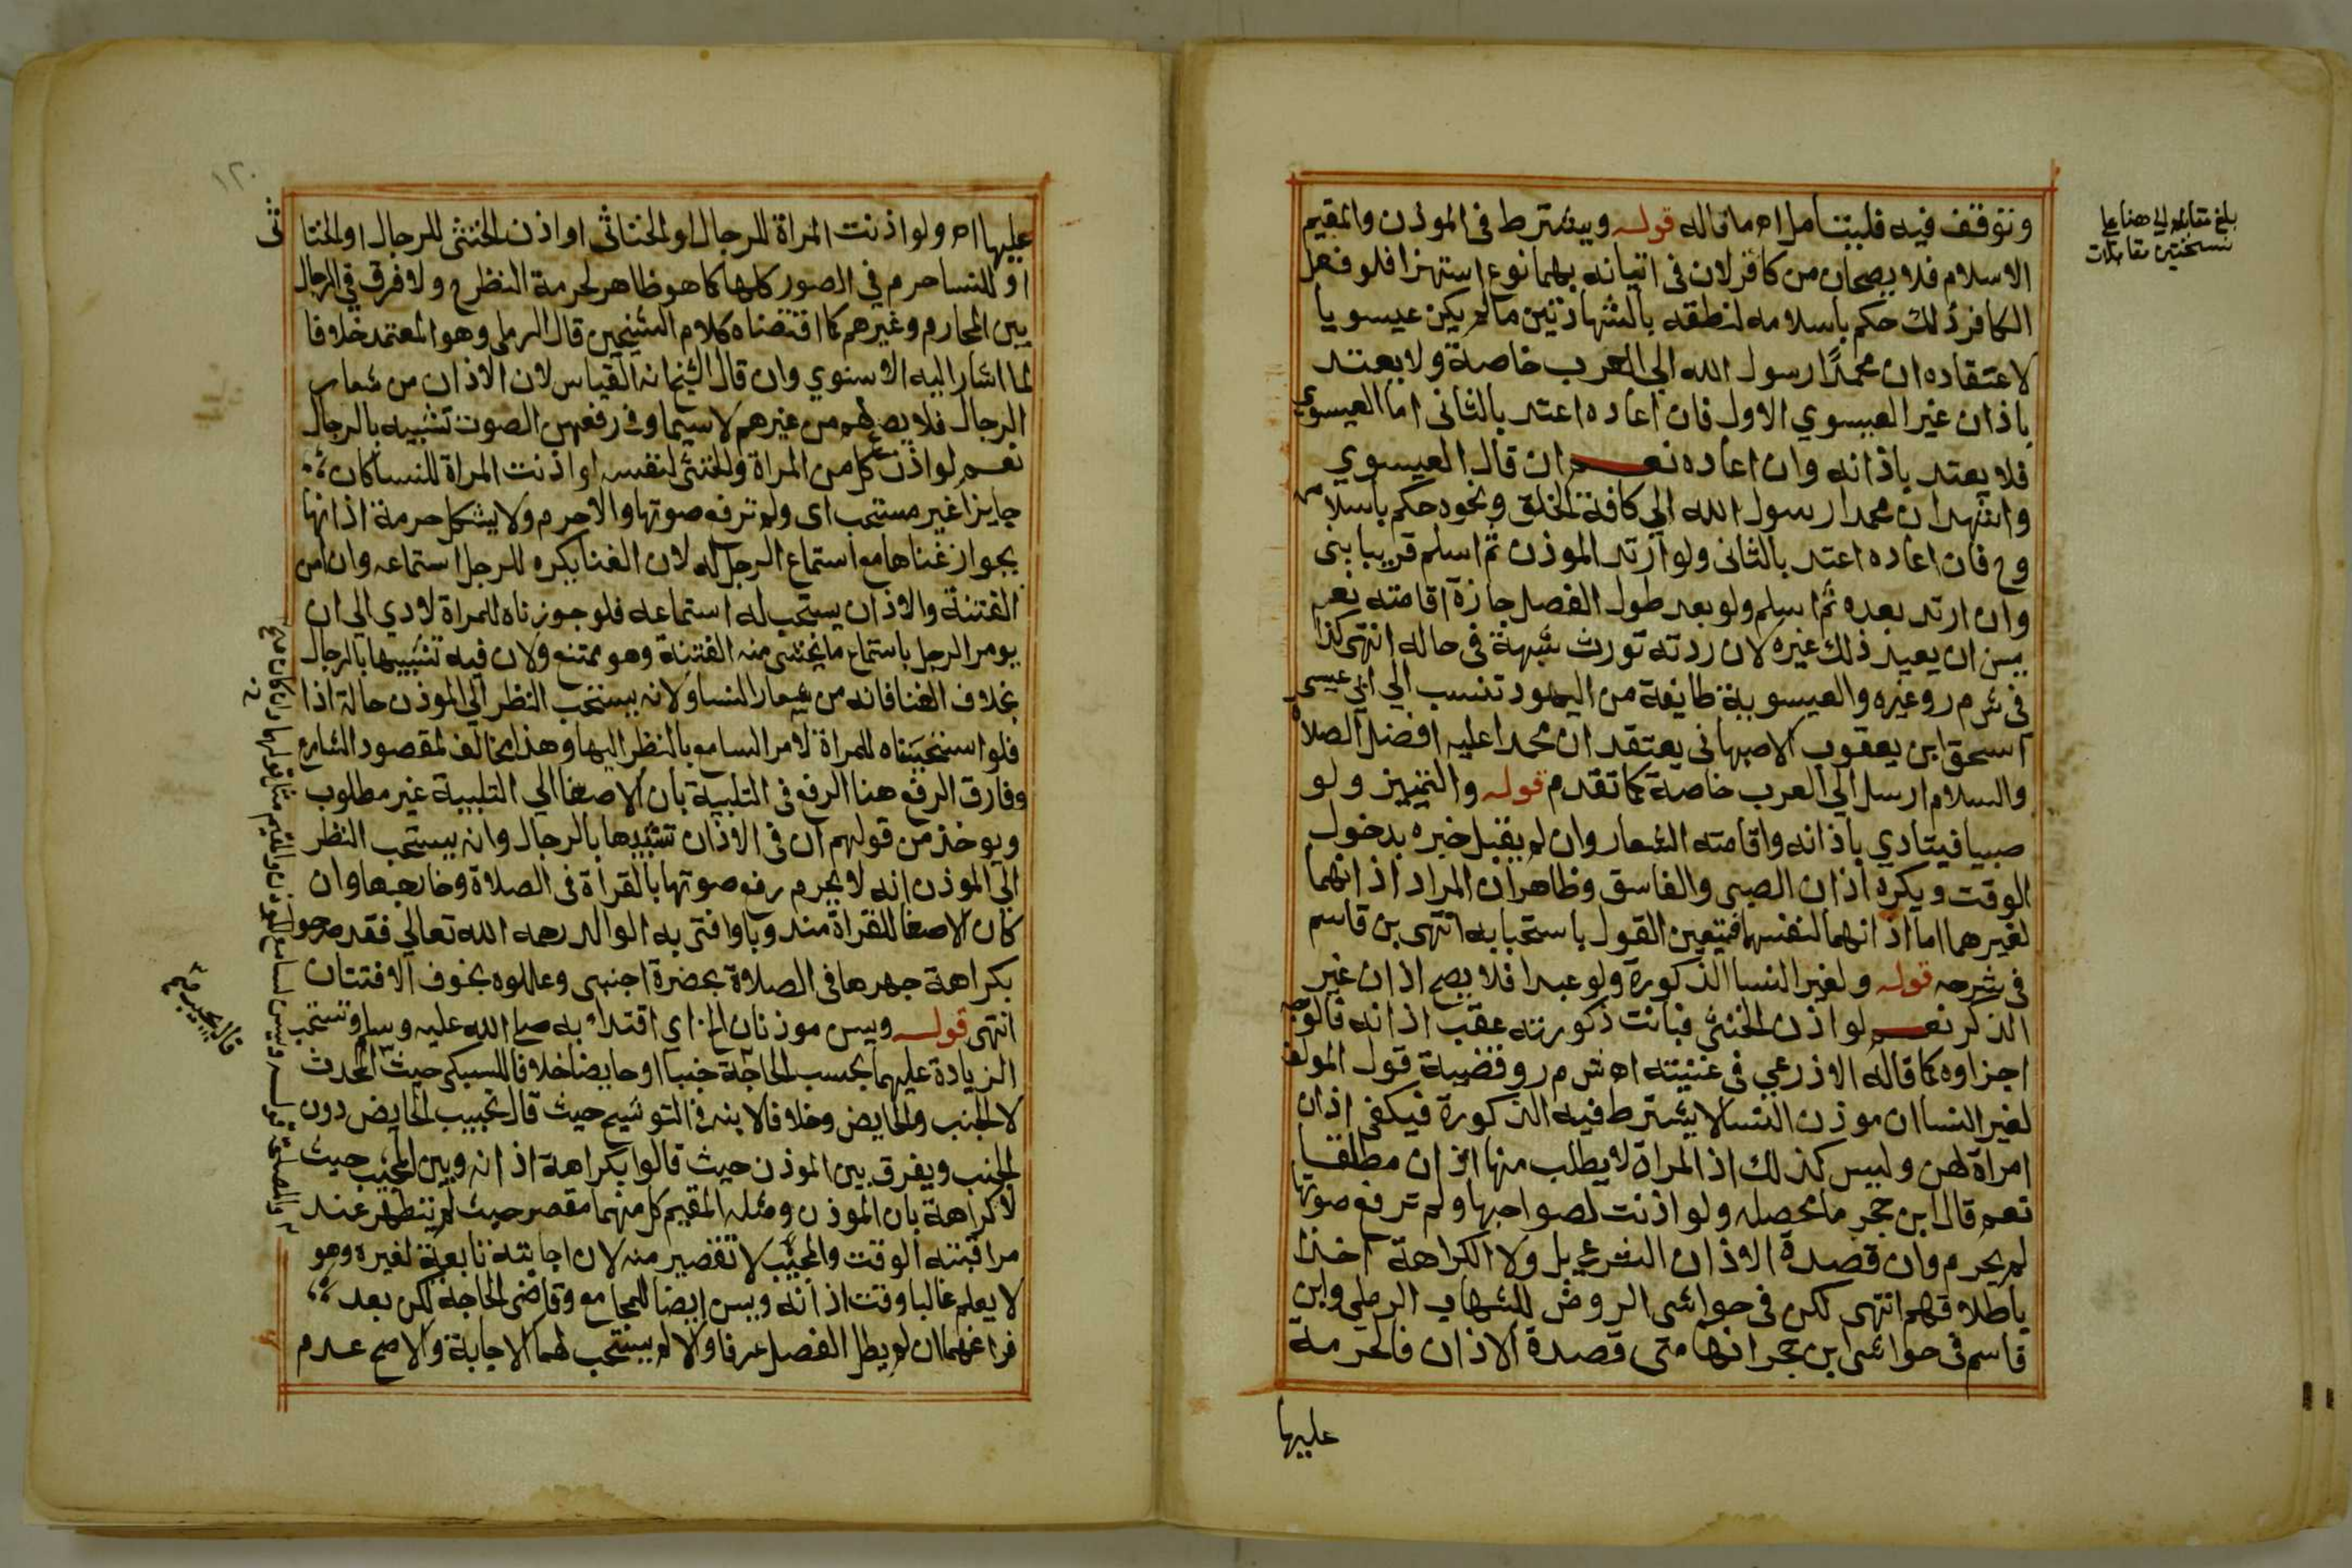 ونتوقف فيه فليتامل اه ما قاله قوله ويشترط في الموذن والمقيم
الاسلام فلا يصحان من كافر لان في اتيانه بهما نوع استهزا فلو فعل
الكافر ذلك حكم باسلامه لنطقه بالشهادتين ما لم يكن عيسويا
لاعتقاده ان محمدًا رسول الله الي العرب خاصة ولا يعتد
باذان غير العيسوي الاول فان اعاده اعتد بالثاني اما العيسوي
فلا يعتد باذانه وان اعاده نعم ان قال العيسوي
واشهد ان محمدا رسول الله الي كافة الخلق ونحوه حكم باسلامه
وح فان اعاده اعتد بالثاني ولو ارتد الموذن ثم اسلم قريبا بنى
وان ارتد بعده ثم اسلم ولو بعد طول الفصل جازة اقامته نعم
يسن ان يعيد ذلك غيره لان ردته تورث شبهة في حاله انتهى كذا
في ش م ر وغيره والعيسوية طايفة من اليهود تنسب الي ابي عيسى
اسحق ابن يعقوب الاصبهاني يعتقد ان محمدا عليه افضل الصلاة
والسلام ارسل الي العرب خاصة كما تقدم قوله والتمييز ولو
صبيا فيتادي باذانه واقامته الشعار وان لم يقبل خبره بدخول
الوقت ويكره اذان الصبي والفاسق وظاهر ان المراد اذانهما
لغيرهما اما اذانهما لنفسهما فيتعين القول باستحبابه انتهى بن قاسم
في شرحه قوله ولغير النسا الذكورة ولو عبدا فلا يصح اذان غير
الذكر نعم لو اذن الخنثى فبانت ذكورته عقب اذانه فالوجه
اجزاوه كما قاله الاذرعي في غنيته اه ش م ر وقضية قول المولف
لغير النسا ان موذن النسا لا يشترط فيه الذكورة فيكفي اذان
امراة لهن وليس كذلك اذ المراة لا يطلب منها اذان مطلقا
نعم قال ابن حجر ما محصله ولو اذنت لصواحبها ولم ترفع صوتها
لم يحرم وان قصدة الاذان الشرعي بل ولا الكراهة اخذا
باطلاقهم انتهى لكن في حواشي الروض للشهاب الرملي وابن
قاسم في حواشي ابن حجر انها متى قصدة الاذان فالحرمة
عليها
بلغ مقابلة الي هنا علي
نسختين مقابلات
١٢٠
عليها اه ولو اذنت المراة للرجال او الخناثى او اذن الخنثى للرجال او الخناثى
او للنسا حرم في الصور كلها كما هو ظاهر لحرمة النظر ح ولا فرق في الرجال
بين المحارم وغيرهم كما اقتضاه كلام الشيخين قال الرملي وهو المعتمد خلافا
لما اشار اليه الاسنوي وان قال الشيخ انه القياس لان الاذان من شعار
الرجال فلا يصح لهم من غيرهم لا سيما وفي رفعهن الصوت تشبيه بالرجال
نعم لو اذن كل من المراة والخنثى لنفسه او اذنت المراة للنسا كان
جايزا غير مستحب اى ولم ترفع صوتها والا حرم ولا يشكل حرمة اذانها
بجواز غناها مع استماع الرجل له لان الغنا يكره للرجل استماعه وان امن
الفتنة والاذان يستحب له استماعه فلو جوزناه للمراة لادي الي ان
يومر الرجل باستماع ما يخشى منه الفتنة وهو ممتنع ولان فيه تشبيهها بالرجال
بخلاف الغنا فانه من شعار النسا ولانه يستحب النظر الي الموذن حالة اذا
فلو استحبيناه للمراة لامر السامع بالنظر اليها وهذا مخالف لمقصود الشارع
وفارق الرفع هنا الرفع في التلبية بان الاصغا الي التلبية غير مطلوب
ويوخذ من قولهم ان في الاذان تشبيها بالرجال وانه يستحب النظر
الي الموذن انه لا يحرم رفع صوتها بالقراة في الصلاة وخارجها وان
كان الاصغا للقراة مندوبا وافتى به الوالد رحمه الله تعالي فقد صرحوا
بكراهة جهرها في الصلاة بحضرة اجنبى وعللوه بخوف الافتتان
انتهى قوله ويسن موذنان الخ اي اقتداء به صلي الله عليه وسلم وتستحب
الزيادة عليهما بحسب الحاجة جنبا او حايضا خلافا للسبكي حيث المحدث
لا الجنب والحايض وخلافا لابنه في التوشيح حيث قال تجيب الحايض دون
الجنب ويفرق بين الموذن حيث قالوا بكراهة اذانه وبين المجيب حيث
لا كراهة بان الموذن ومثله المقيم كل منهما مقصر حيث لم يتطهر عند
مراقبته الوقت والمجيب لا تقصير منه لان اجابته تابعة لغيره وهو
لا يعلم غالبا وقت اذانه ويسن ايضا للمجامع وقاضى الحاجة لكن بعد
فراغهما ان لم يطل الفصل عرفا والا لم يستحب لهما الاجابة والاصح عدم